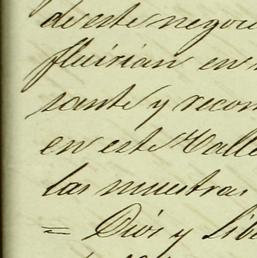 de este negoci
fluirian en
sante y recom
en este Valle
las muestras
= Dios y Lib